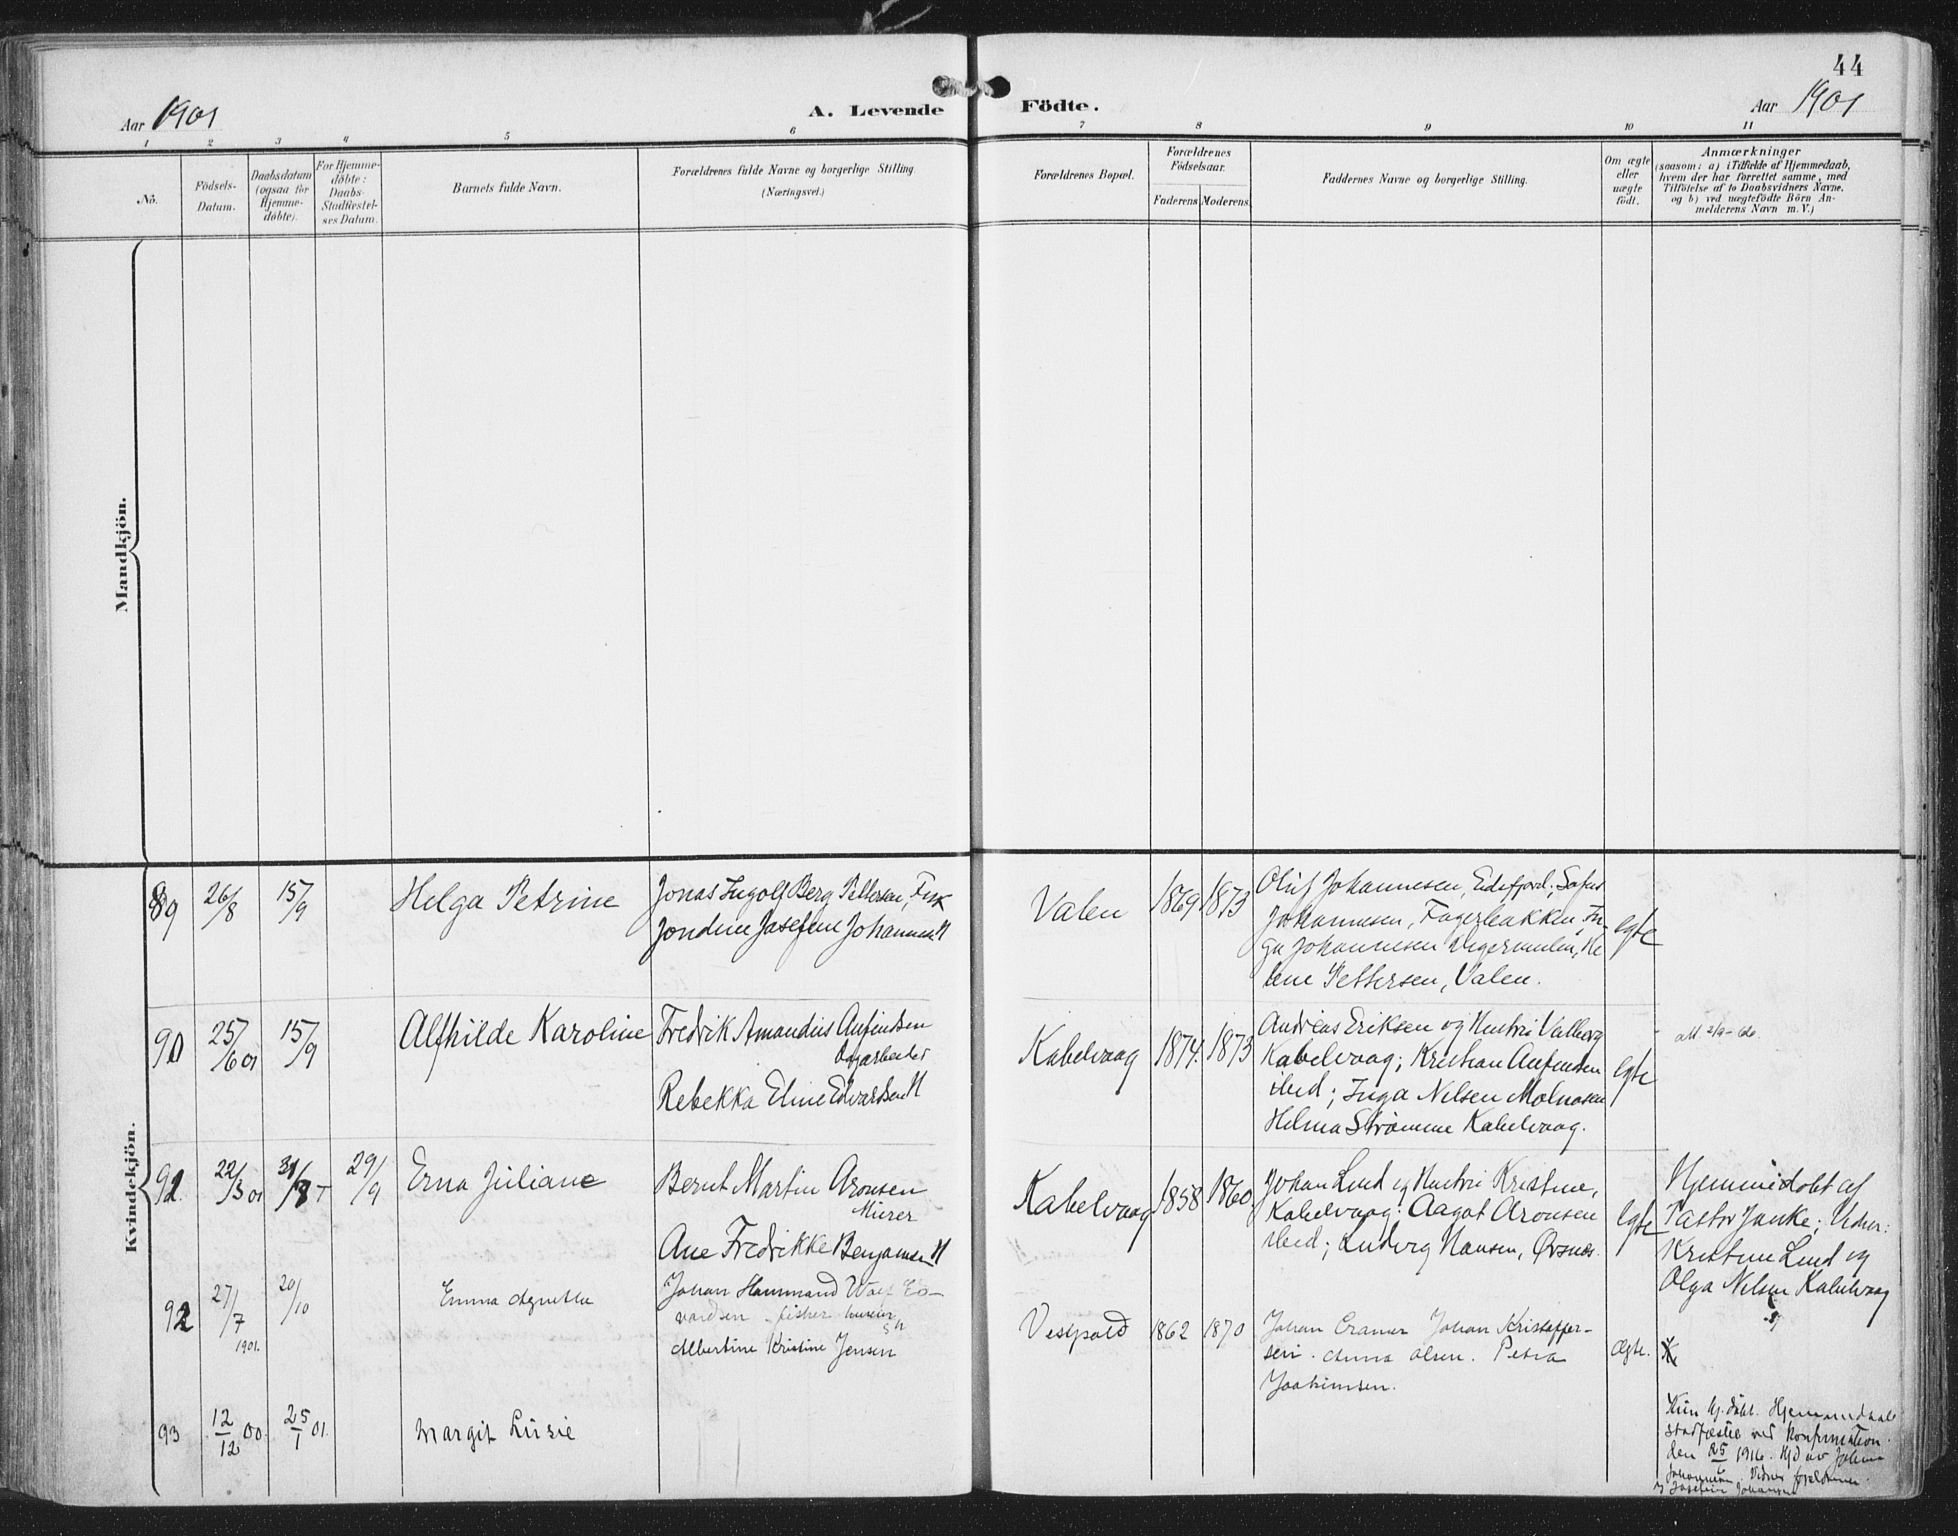 44
Aar 1901
A. Levende Födte.
Aar 1901
1 2 3 4 5 6 7 8 9 10 11
No.
Födsels-Datum.
Daabsdatum (ogsaa for Hjemme-döbte).
For Hjemme-döbte: Daabs-Stadfestel-ses Datum.
Barnets fulde Navn.
Forældrenes fulde Navne og borgerlige Stilling.
(Næringsvei.)
Forældrenes Bopæl.
Forældrenes Födselsaar.
Faderens Moderens
Faddernes Navne og borgerlige Stilling.
Om ægte eller uægte födt.
Anmærkninger
(saasom: a) i Tilfælde af Hjemmedaab,
hvem der har forrettet samme, med
Tilföielse af to Daabsvidners Navne,
og b) ved uægtefödte Börn An-
melderens Navn m. V.)
Mandkjön.
Kvindekjön.
89
26/8
15/9
Helga Petrine
Jonas Ingolf Berg Pettersen, Fisk
Jondine Josefine Johannesen H
Valen
1869
1873
Oluf Johannesen, Eidsfjord; Sofus
Johannesen, Fagerbakken, In-
ga Johannesen Digermulen, He
lene Pettersen, Valen.
egte
90
25/6 01
15/9
Alfhilde Karoline
Fredrik Amandus Anfindsen
Rebekka Eline Edvardsen H
Kabelvaag
1874
1873
Andreas Eriksen og Hustru Valborg
Kabelvaag; Kristian Anfindsen
ibid; Inga Nilsen Molnosen
Helma Strømme Kabelvaag.
egte
92
22/3 01
31/8
29/9
Erna Juliane
Bernt Martin Aronsen
Murer
Ane Fredrikke Benjaminsen H
Kabelvaag
1858
1860
Johan Lind og Hustru Kristine,
Kabelvaag; Aagot Aronsen
ibid; Ludvig Hansen, Ørsnes.
egte
Hjemmedøbt af
Pastor Janke; Vidner:
Kristine Lind og
Olga Nilsen Kabelvaag
92
27/7 1901.
20/10
Emma Agnetha
Johan Hammond Wolf Ed-
vardsen fisker
Albertine Kristine Jensen
Vestpold
1862
1870
Johan Cramer Johan Kristoffer-
sen. Anna Olsen. Petra
Joakimsen.
Ægte.
93
12/12 00.
25/1 01.
Margit Lusie
Kun hj. døbt. Hjemmedaab
stadfæstet ved konfirmation
den 25/6 1916. Hjd av Johan
Johannesen. Vidner foreldrene
Josefin Johansen